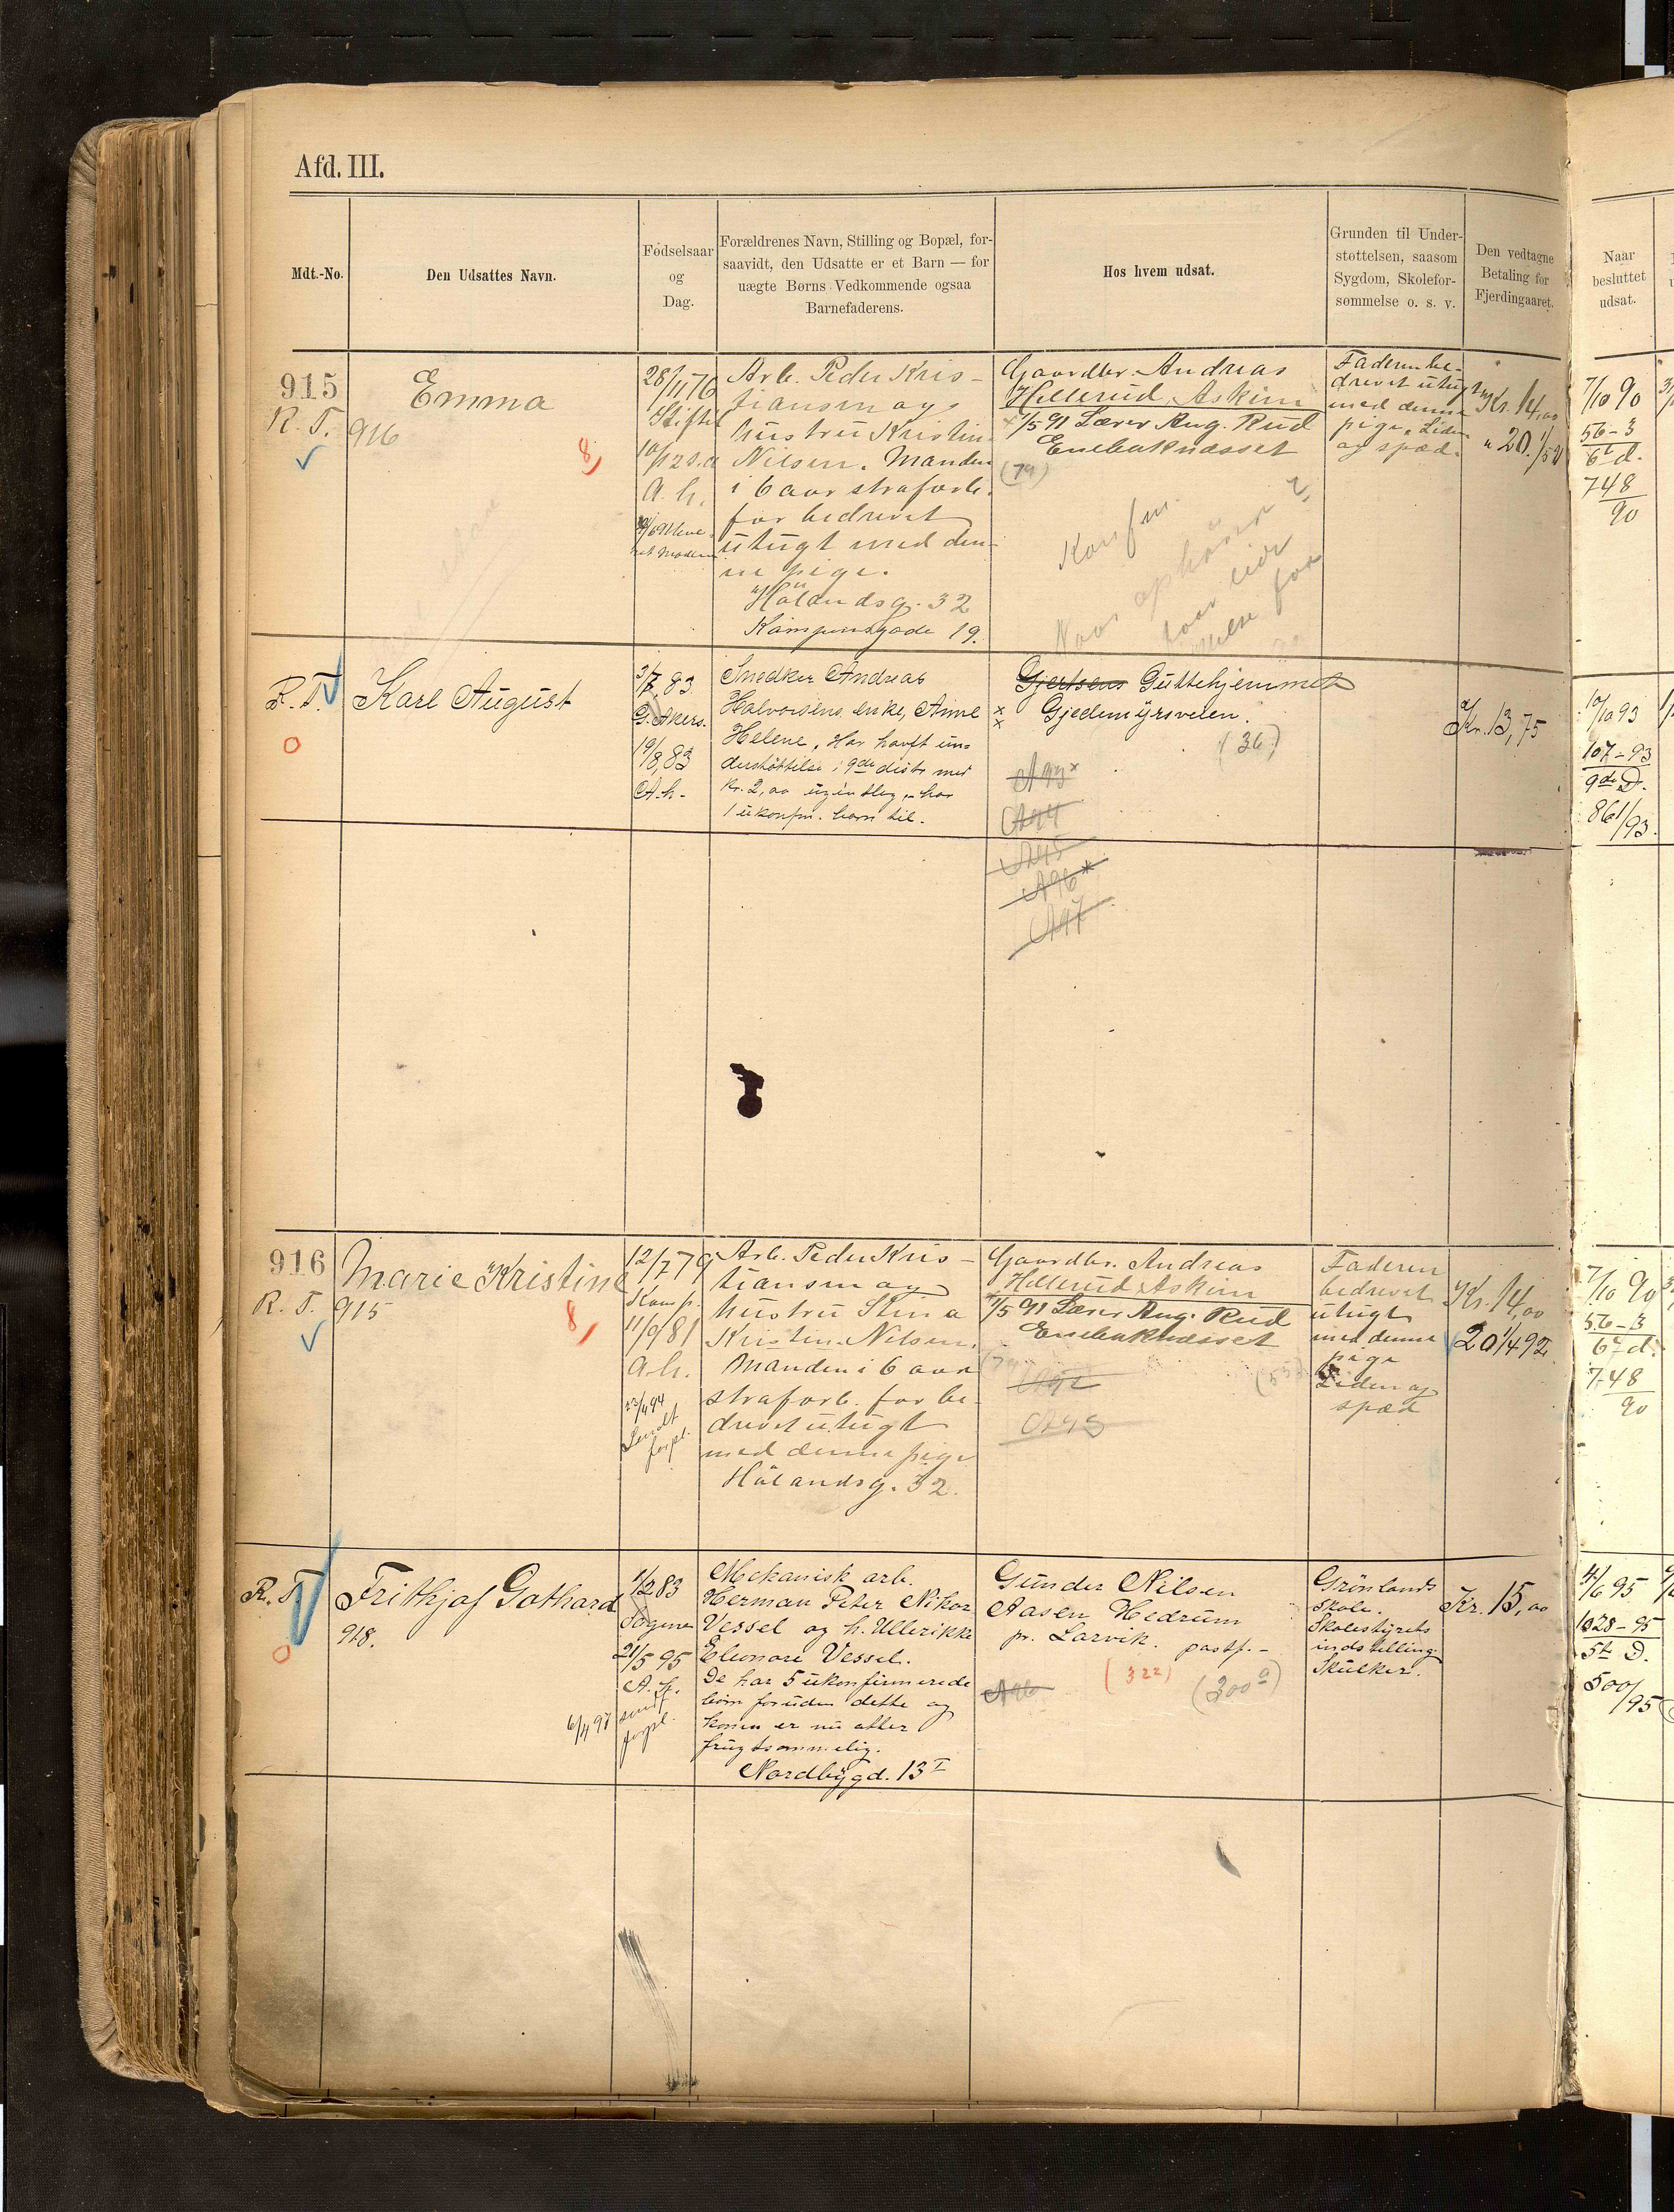 Afd. III.
Mdt.-No.
Den Udsattes Navn.
Fødselsaar
og
Dag.
Forældrenes Navn, Stilling og Bopæl, for-
saavidt, den Udsatte er et Barn — for
uægte Børns Vedkommende ogsaa
Barnefaderens.
Hos hvem udsat.
Grunden til Under-
støttelsen, saasom
Sygdom, Skolefor-
sømmelse o. s. v.
Den vedtagne
Betaling for
Fjerdingaaret.
Naar
besluttet
udsat.
915
R. T.
Emma
916
8
28/11 76
10/12 s.a
A. h.
Arb. Peder Kris-
tiansen og
hustru Kristin
Nilsen. Manden
i 6 aar strafarb.
for bedrevet
utugt med den-
ne pige.
Hölandsg. 32
Kampensgade 19.
Gaardbr. Andreas
Hellerud, Askim
1/5 91 Lærer Aug. Rud
Enebaknæsset
(79)
Konfm.
Faderen be-
drevet utugt
med denne
pige. Liden
og spæd.
Kr. 14,00
" 20.
7/10 90
56-3
6te d.
748
90
R. T.
Karl August
3/7 83
G. Akers.
19/8 83
A. h.
Snedker Andreas
Halvorsens enke, Anne
Helene. Har havft un-
derstøttelse i 9de distr. med
Kr. 2,00 ugentlig, - har
1 ukonfm. barn til.
Gjertsens Guttehjemmet
Gjedemyrsveien.
(36)
A 93
A 94
A 95
A 96
A 97
Kr. 13,75
10/10 93
107-93
9de D.
861/93.
916
R. T.
Marie Kristine
915
8
12/7 79
Kamp.
11/9 81
A. h.
23/4 94
Sendt
forpl.
Arb. Peder Kris-
tiansen og
hustru Stina
Kristin Nilsen.
Manden i 6 aar
strafarb. for be-
drevet utugt
med denne pige
Hölandsg. 32.
Gaardbr. Andreas
Hellerud, Askim
1/5 91 Lærer Aug. Rud
Enebaknæsset
Faderen
bedrevet
utugt
med denne
pige
Liden og
spæd
Kr. 14,00
20 1/4 92
7/10 90
56-3
6te d.
748
90
R. T.
Frithjof Gothard
918.
11/2 83
21/5 95
A. h.
6/4 97
sendt
forpl.
Mekanisk arb.
Herman Peter Nikor
Vessel og h. Ullerikke
Eleonore Vessel.
De har 5 ukonfirmerede
børn foruden dette og
konen er nu atter
frugtsommelig.
Nordbygd. 13 I
Gunder Nilsen
Aasen Hedrum
pr. Larvik. postsp.-
A 96
(322)
(300 a)
Grønlands
skole.
Skolestyrets
indstilling.
Skulker.
Kr. 15,00
1038-95
5te D.
500/95